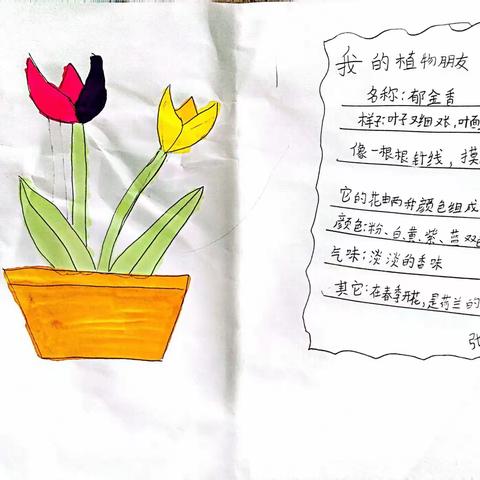 我的植物朋友
名称:郁金香
样子:叶子又细又长,叶面
像一根根针线,摸
它的花由两种颜色组成
颜色:粉、白、黄、紫、蓝双色
气味:淡淡的香味
其它:在春季开花,是荷兰的
张